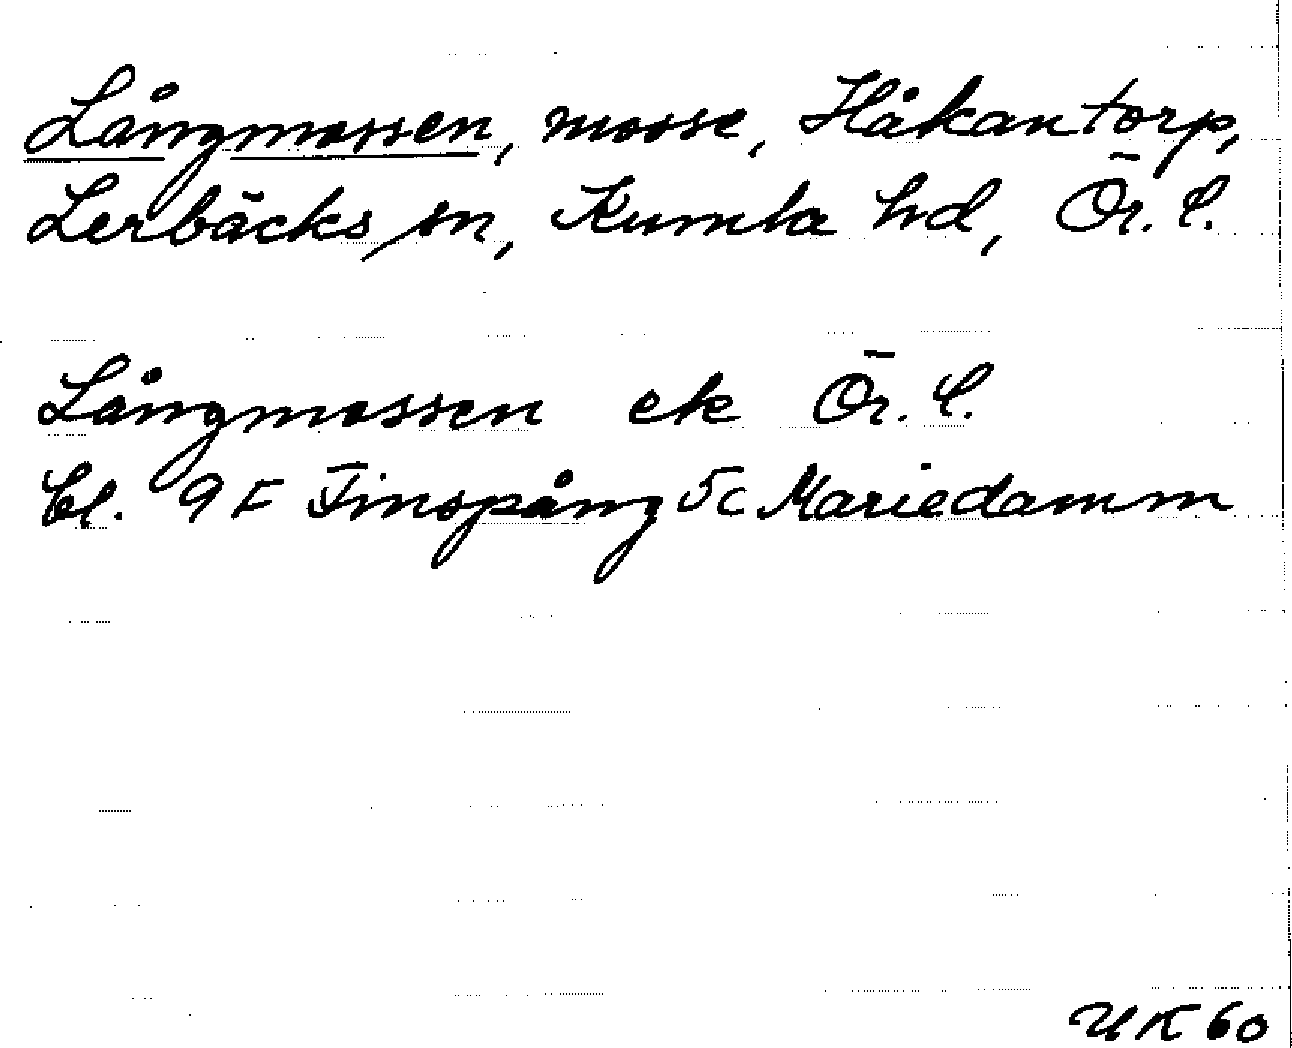 Långmossen, mosse, Håkantorp,
Lerbäcks sn, Kumla hd, Ör. l.
Långmossen ek Ör. l.
Bl. 9 F Finspång 5c Mariedamm
UK 60